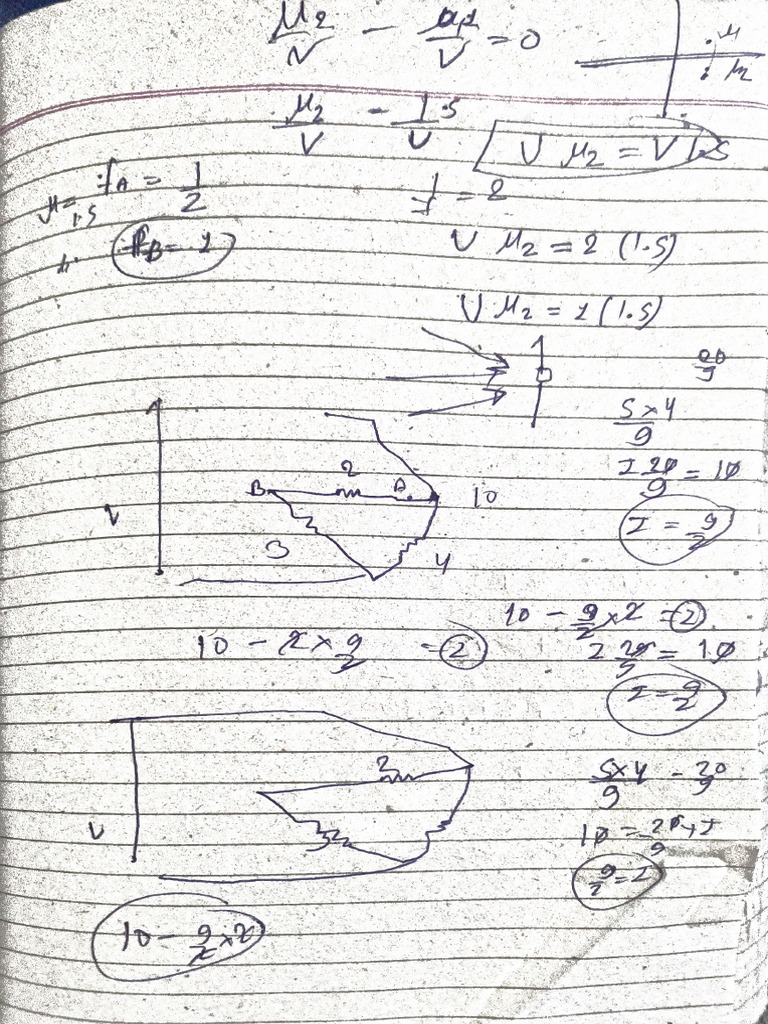 μ2/V - μ1/V = 0
μ
μ2
μ2/V - 1.5/U
U μ2 = V 1.5
μ = 1.5
fA = 1/2
1/f = 2
fB = 1
U μ2 = 2 (1.5)
U μ2 = 1 (1.5)
20/9
5×4/9
I 20/9 = 10
I = 9/2
V
B 2 A 10
3 4
10 - 9/2 × 2 = 2
10 - 2 × 9/2 = 2
I 20/9 = 10
I = 9/2
2
V
3
5×4/9 - 20/9
10 = 20/9 × I
9/2 = I
10 - 9/2 × 2